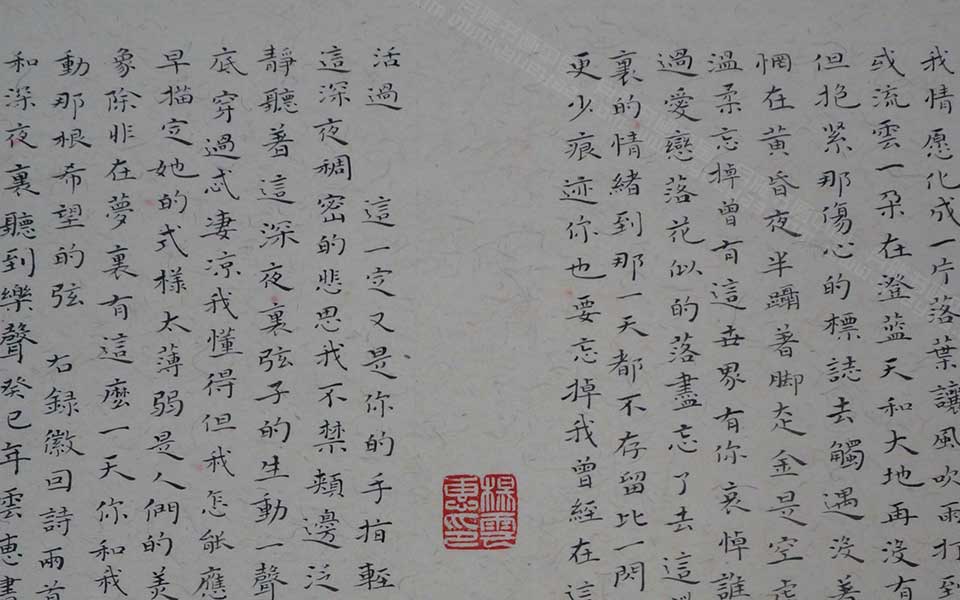 我情愿化成一片落葉讓風吹雨打到
或流雲一朵在澄藍天和大地再沒有
但抱緊那傷心的標誌去觸遇沒著
惘在黃昏夜半躡著脚走全是空虛
溫柔忘掉曾有這世界有你哀悼誰
過愛戀落花似的落盡忘了去這
裏的情緒到那一天都不存留比一閃
更少痕迹你也要忘掉我曾經在這
楊雲惠印
活過 這一定又是你的手指輕
這深夜稠密的悲思我不禁頰邊泛
靜聽著這深夜裏弦子的生動一聲
底穿過忒淒涼我懂得但我怎能應
早描定她的式樣太薄弱是人們的美
象除非在夢裏有這麼一天你和我
動那根希望的弦 右録徽回詩兩首
和深夜裏聽到樂聲癸巳年雲惠書